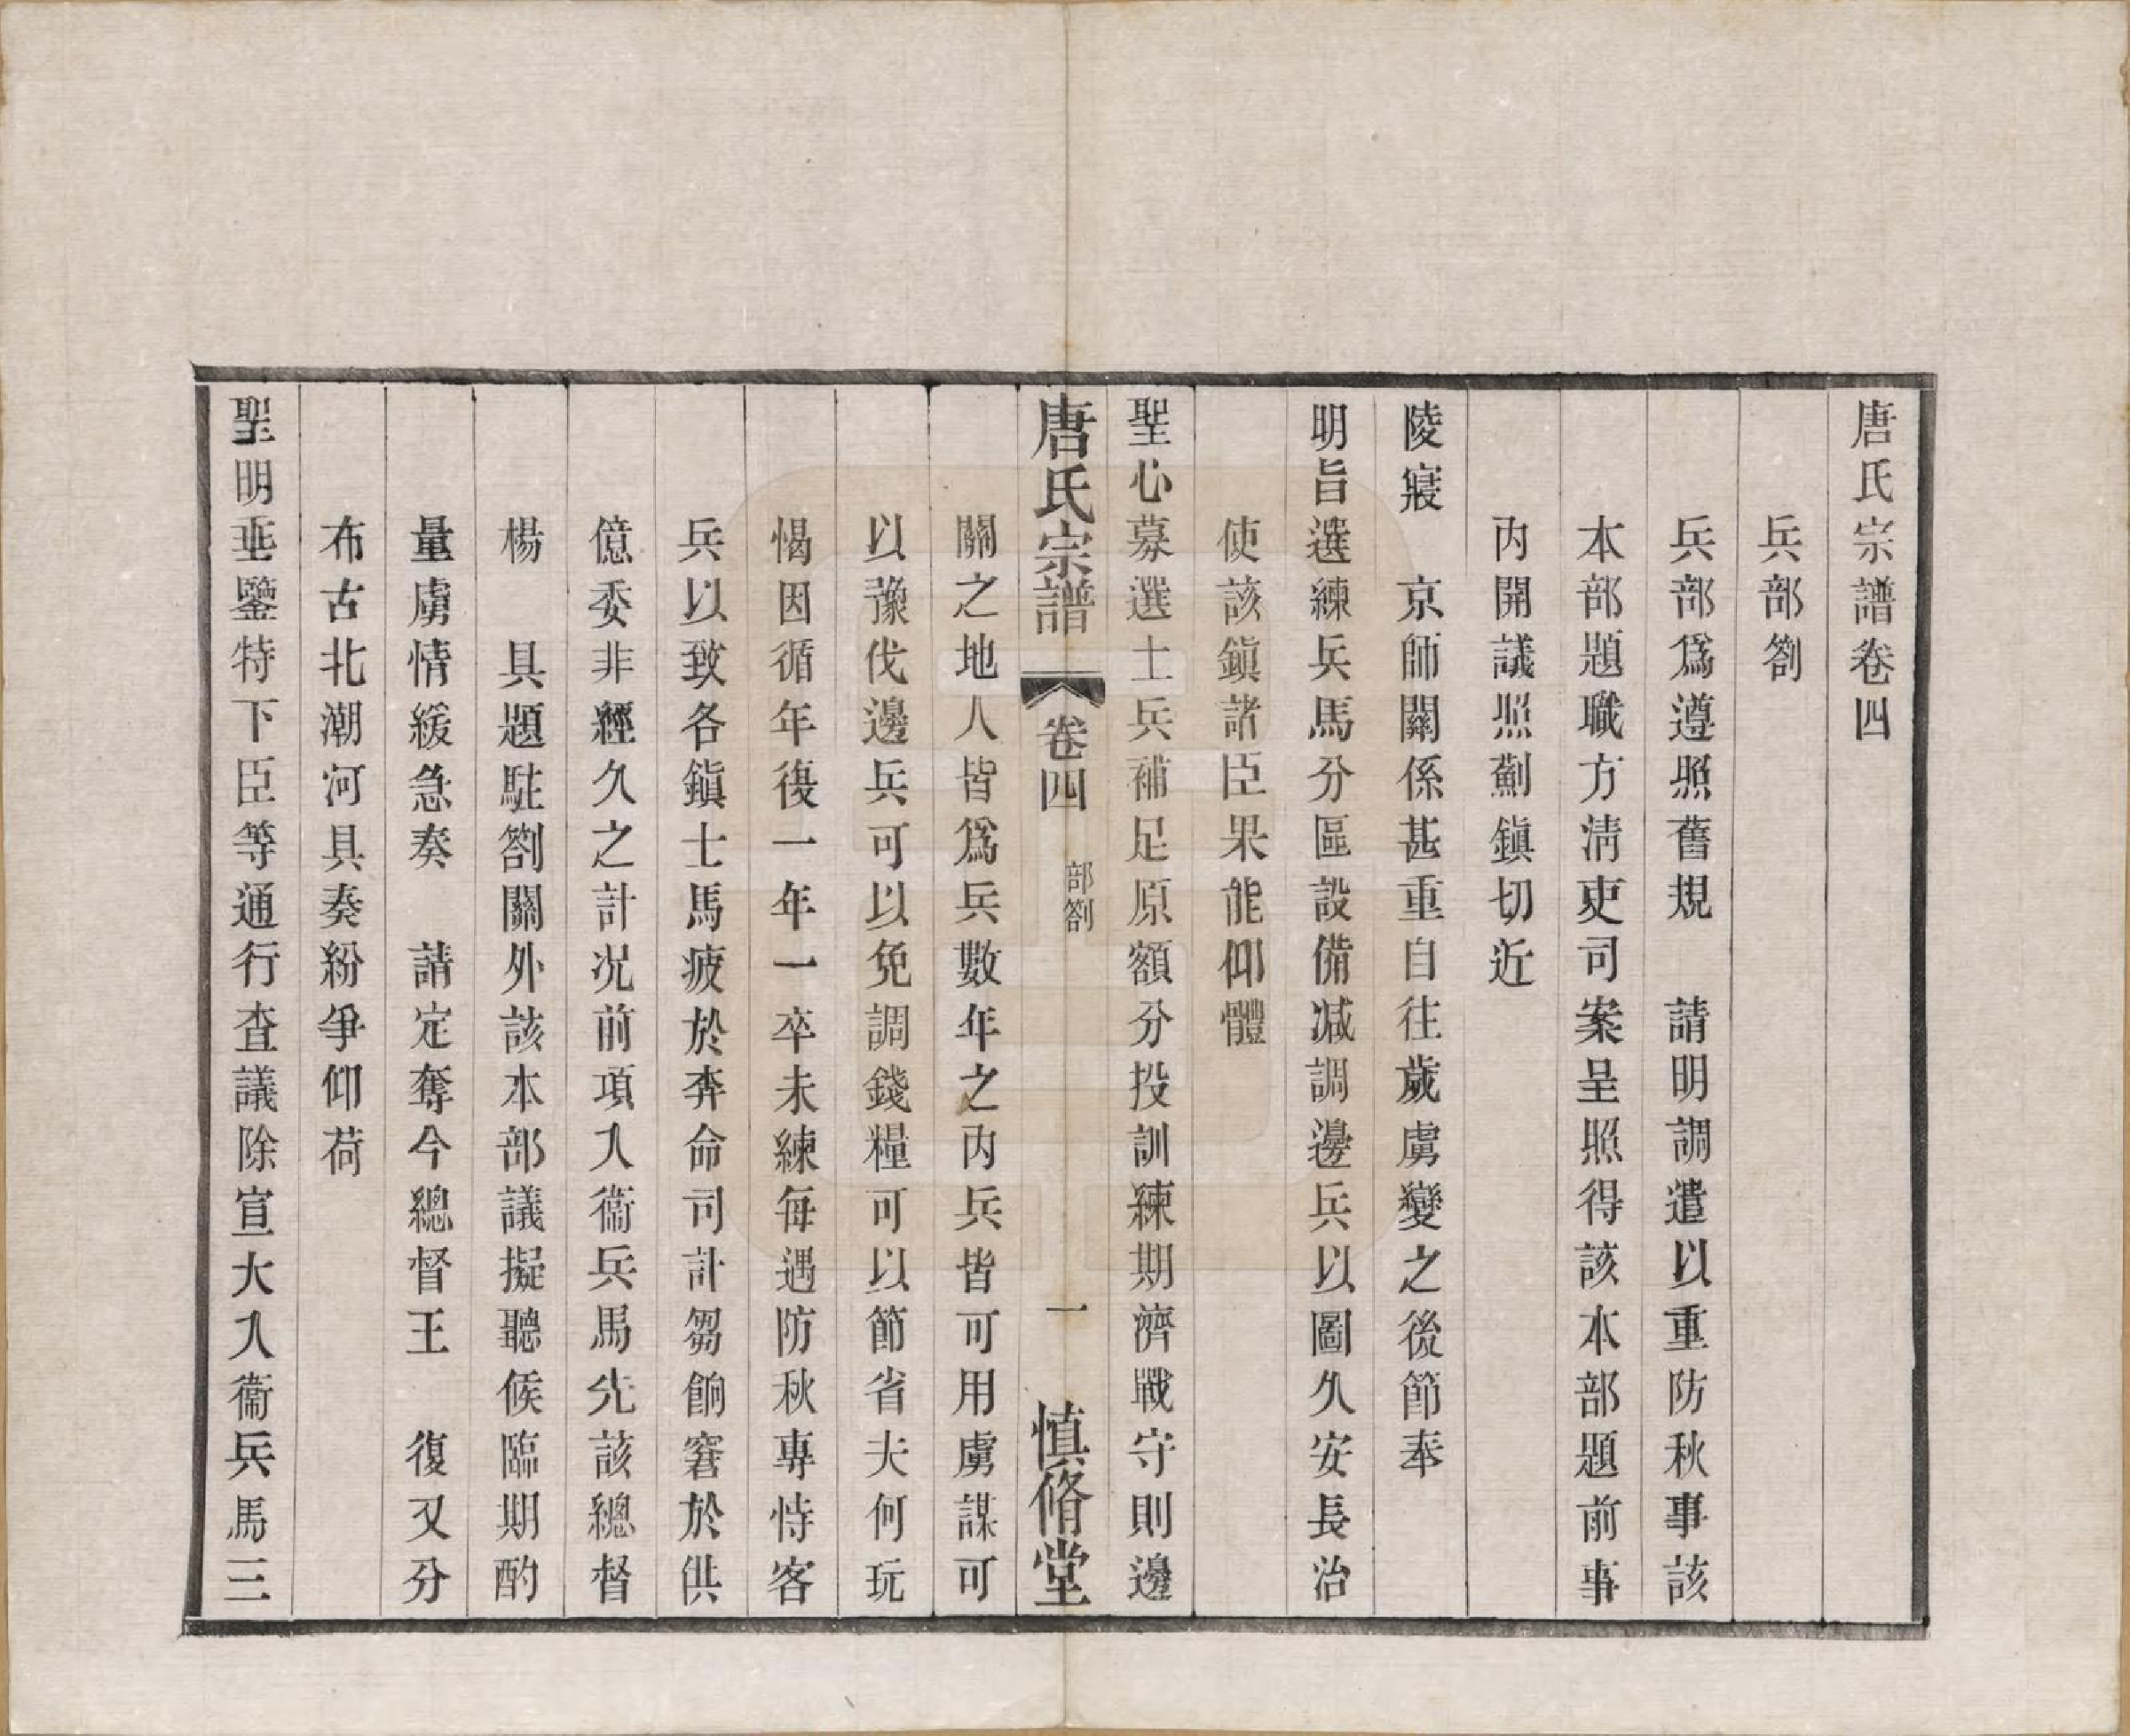 唐氏宗譜卷四
兵部劄
兵部爲遵照舊規　請明調遣以重防秋事該
本部題職方淸吏司案呈照得該本部題前事
內開議照薊鎭切近
陵寢　京師關係甚重自往歲虜變之後節奉
明旨選練兵馬分區設備減調邊兵以圖久安長治
使該鎭諸臣果能仰體
聖心募選士兵補足原額分投訓練期濟戰守則邊
唐氏宗譜　卷四　部劄　一　慎脩堂
關之地人皆爲兵數年之內兵皆可用虜謀可
以豫伐邊兵可以免調錢糧可以節省夫何玩
愒因循年復一年一卒未練每遇防秋專恃客
兵以致各鎭士馬疲於奔命司計芻餉窘於供
億委非經久之計况前項入衞兵馬先該總督
楊　具題駐劄關外該本部議擬聽候臨期酌
量虜情緩急奏　請定奪今總督王　復又分
布古北潮河具奏紛爭仰荷
聖明垂鑒特下臣等通行查議除宣大入衞兵馬三